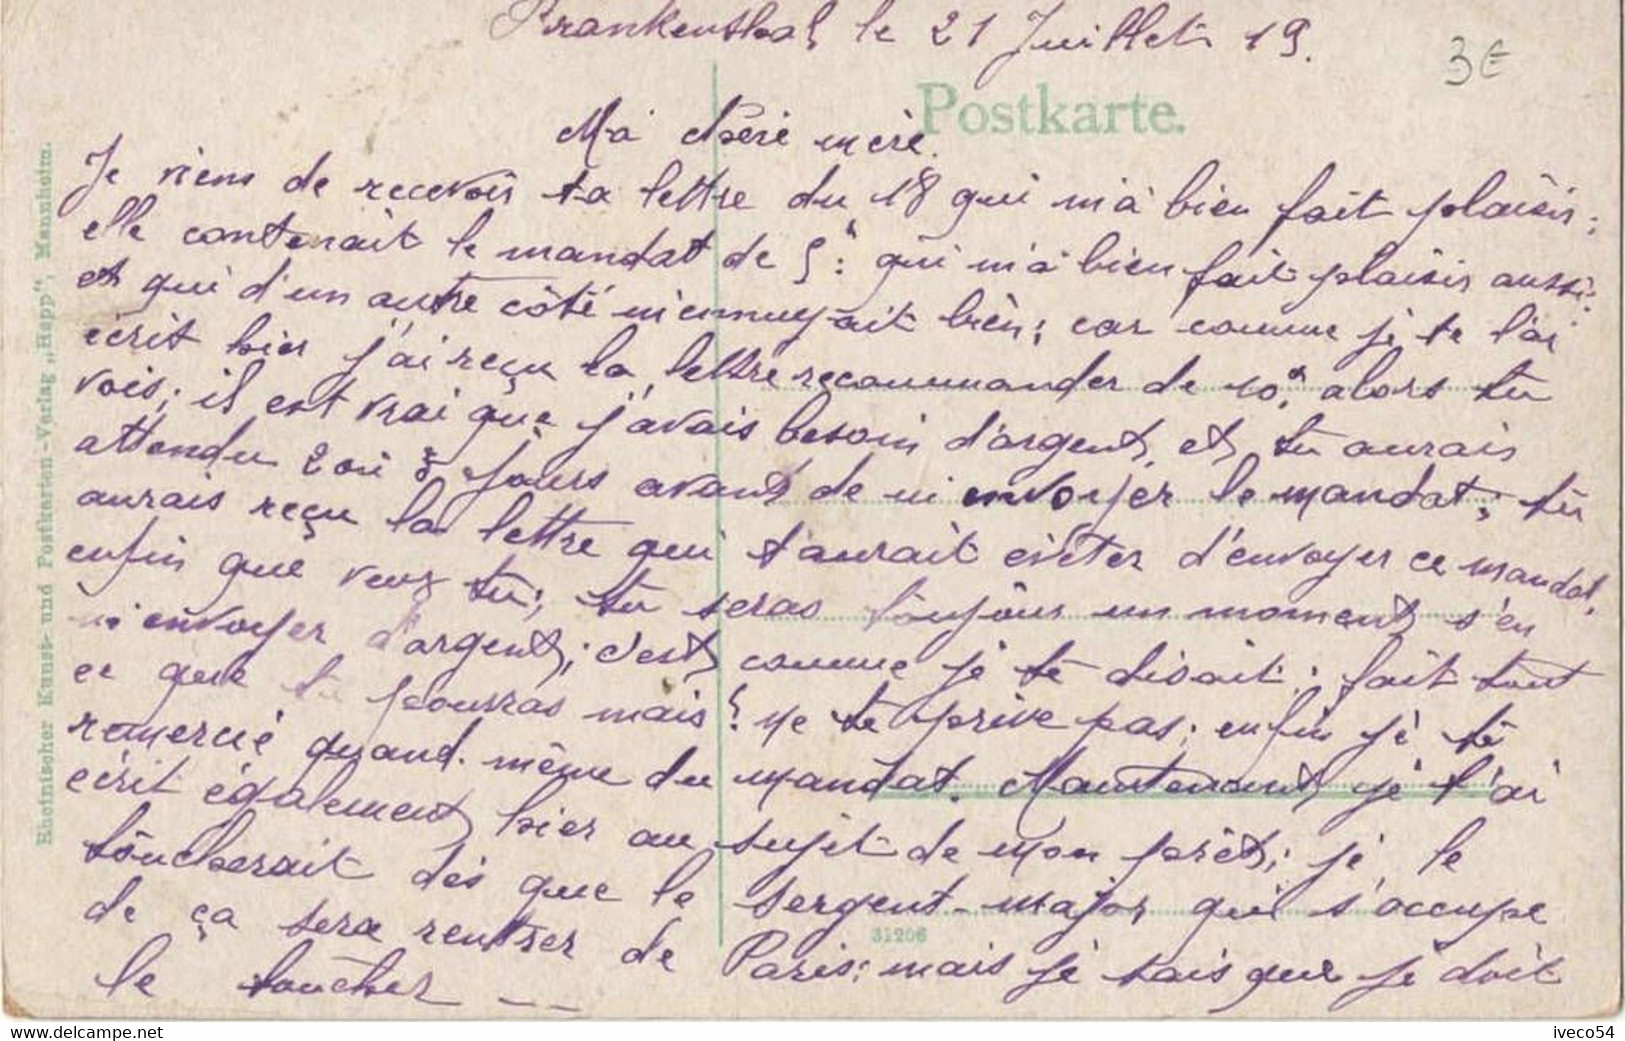 Frankenthal le 21 Juillet 19.
3€
Postkarte.
Ma chéri mère.
Je viens de recevoir ta lettre du 18 qui m'a bien fait plaisir;
elle contenait le mandat de 5f: qui m'a bien fait plaisir aussi;
et qui d'un autre côté m'ennuyait bien; car comme je te l'ai
écrit hier j'ai reçu la lettre recommander de 10f, alors tu
vois; il est vrai que j'avais besoin d'argent, et tu aurais
attendu 2 ou 3 jours avant de m'envoyer le mandat; tu
aurais reçu la lettre qui t'aurait éviter d'envoyer ce mandat,
enfin que veux tu; tu seras toujour un moment s'en
m'envoyer d'argent; c'est comme je te disait; fait tout
ce que tu pourras mais! ne te prive pas; enfin je te
remercié quand-même du mandat. Maintenant je t'ai
écrit également hier au sujet de mon prêt; je le
toucherait dès que le sergent-major qui s'occupe
de ça sera rentrer de Paris; mais je sais que je doit
le toucher _ _
31206
Rheinischer Kunst- und Postkarten-Verlag „Hepp“, Mannheim.
www.delcampe.net
iveco54